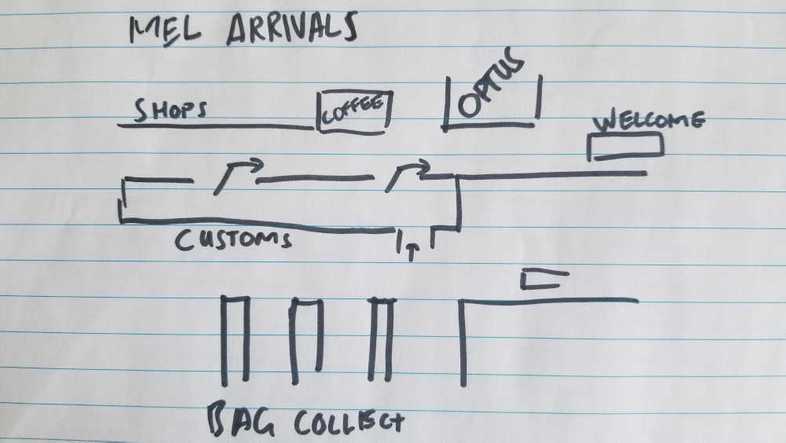 MEL ARRIVALS
SHOPS
COFFEE
OPTUS
WELCOME
CUSTOMS
BAG COLLECT